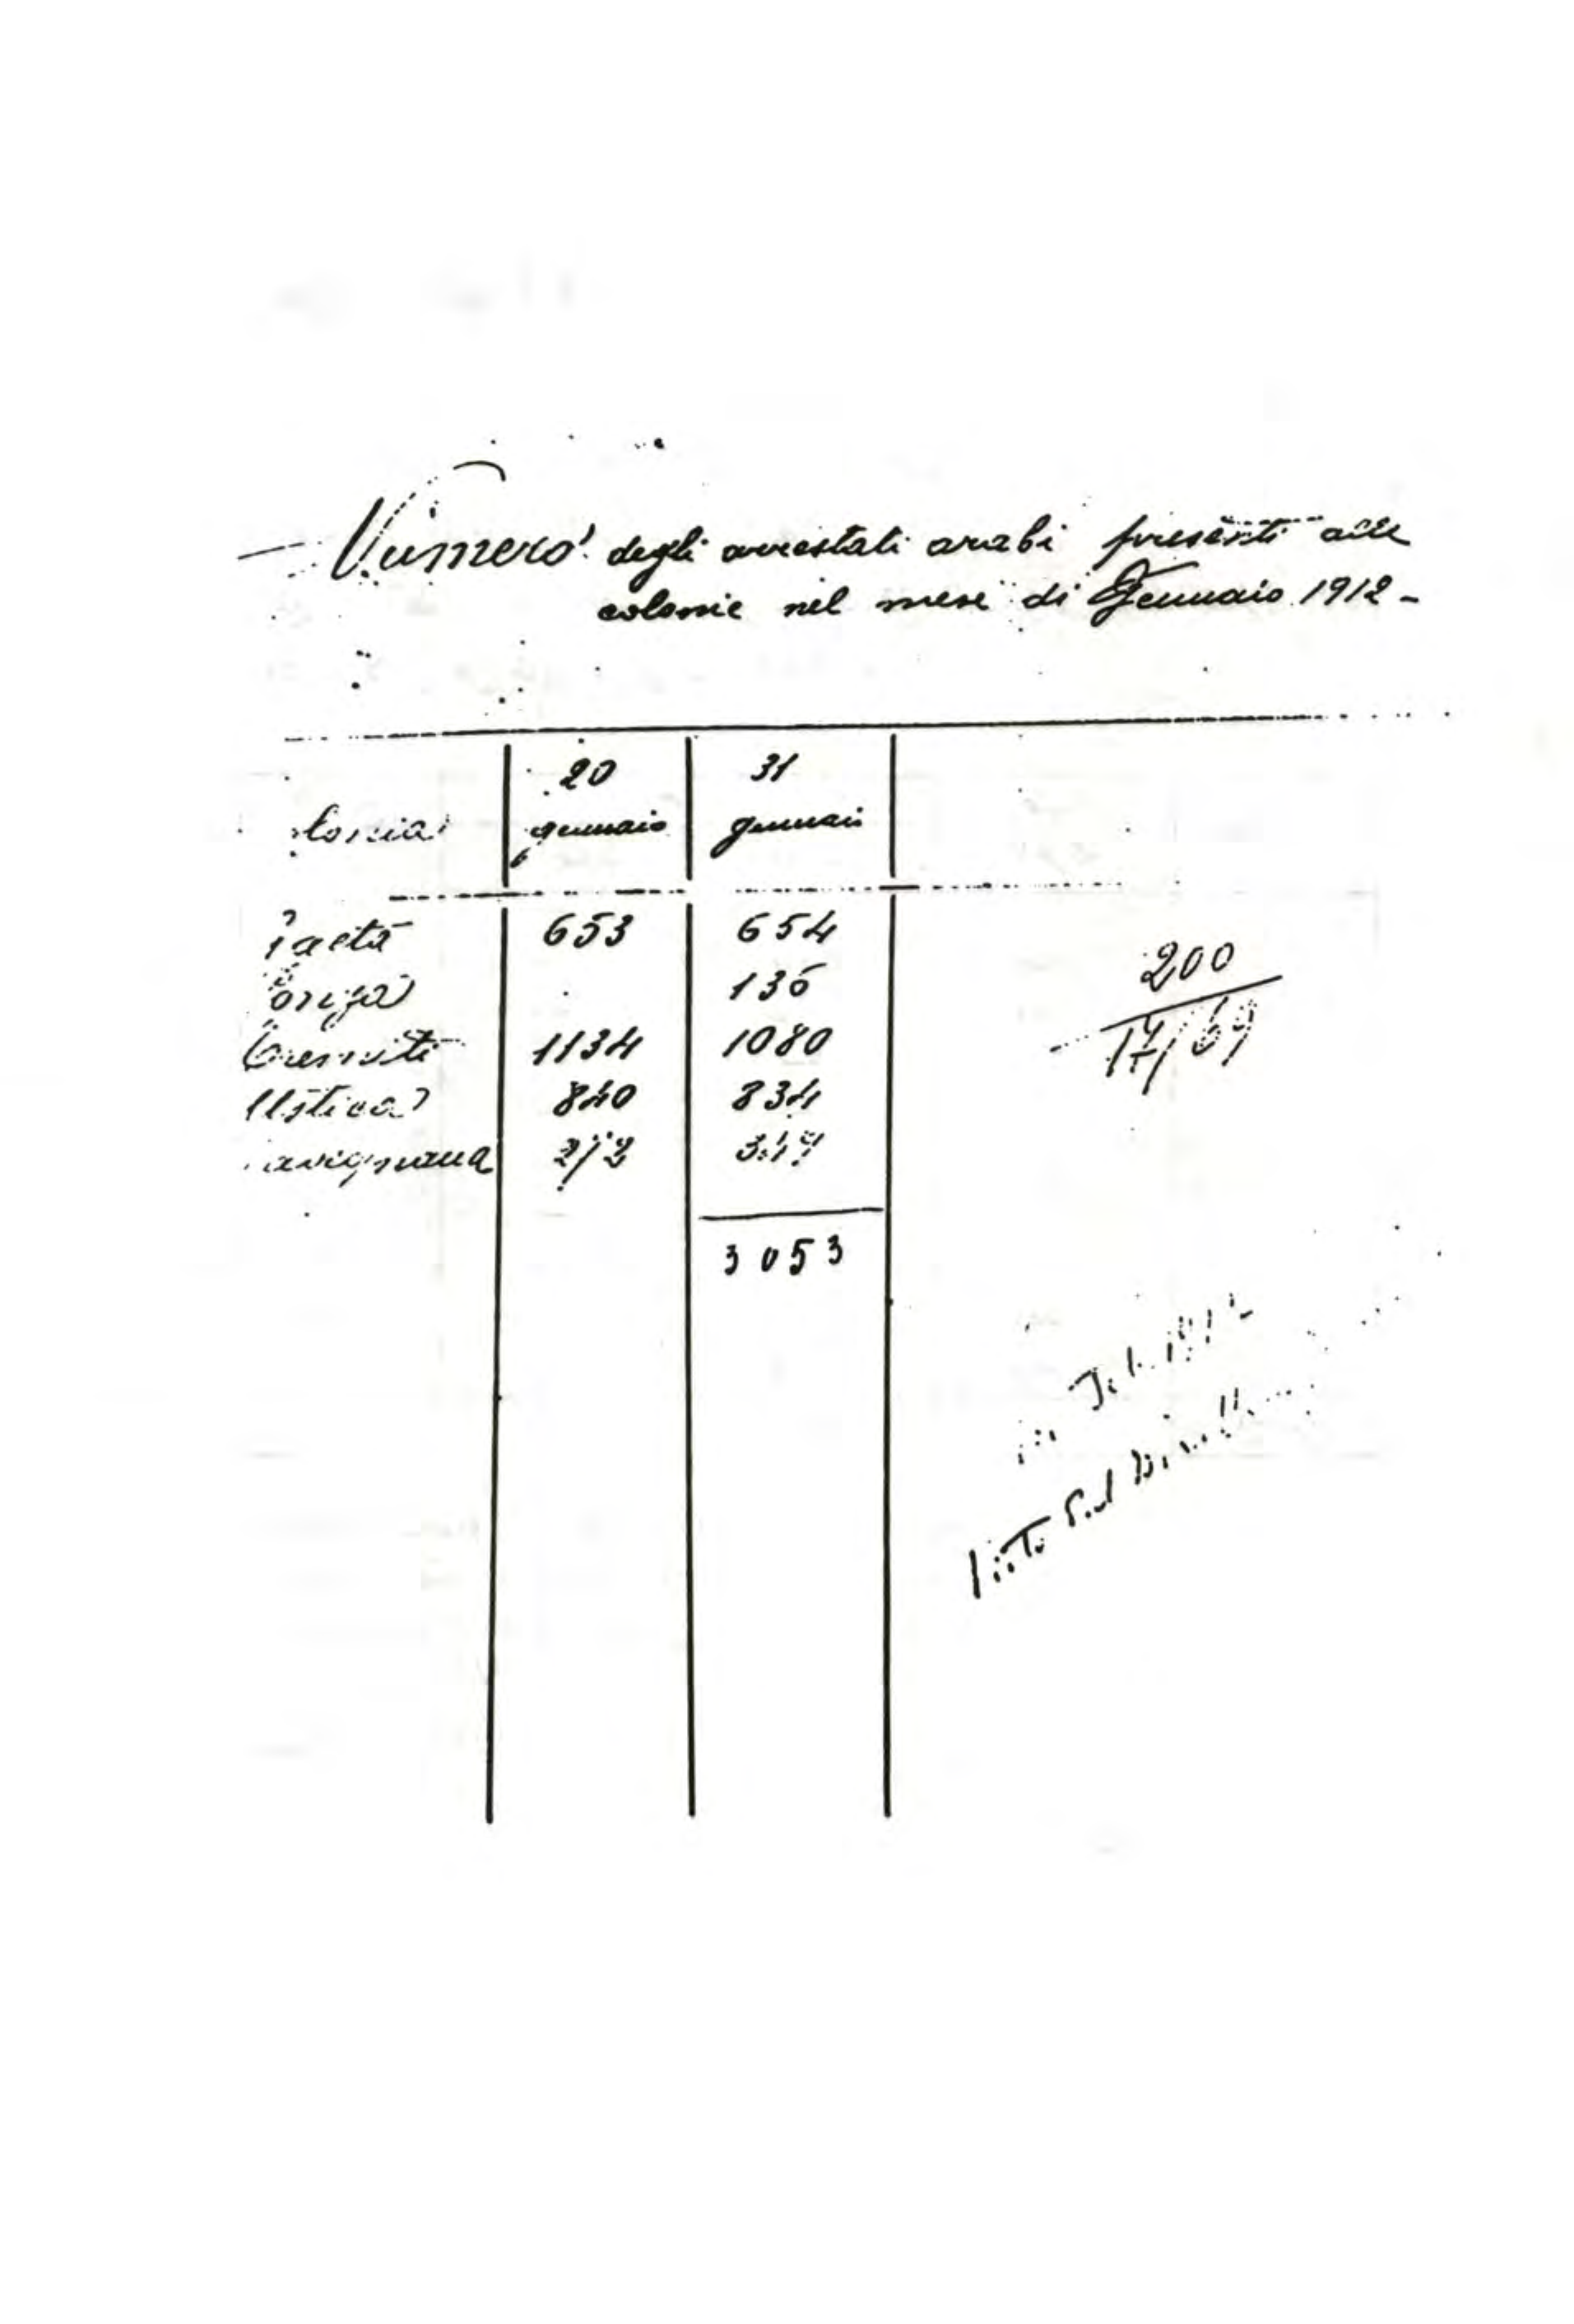 Numero degli arrestati arabi presenti alle
colonie nel mese di Gennaio 1912 -
20 31
lonia gennaio gennaio
Gaeta 653 654
Ponza 136
Tremiti 1134 1080
Ustica 840 834
avignana 272 349
3053
200
17/69